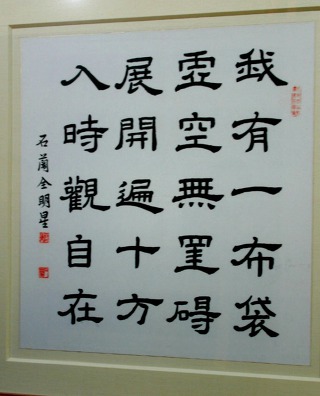 我有一布袋
虛空無罣碍
展開遍十方
入時觀自在
石蘭金明星